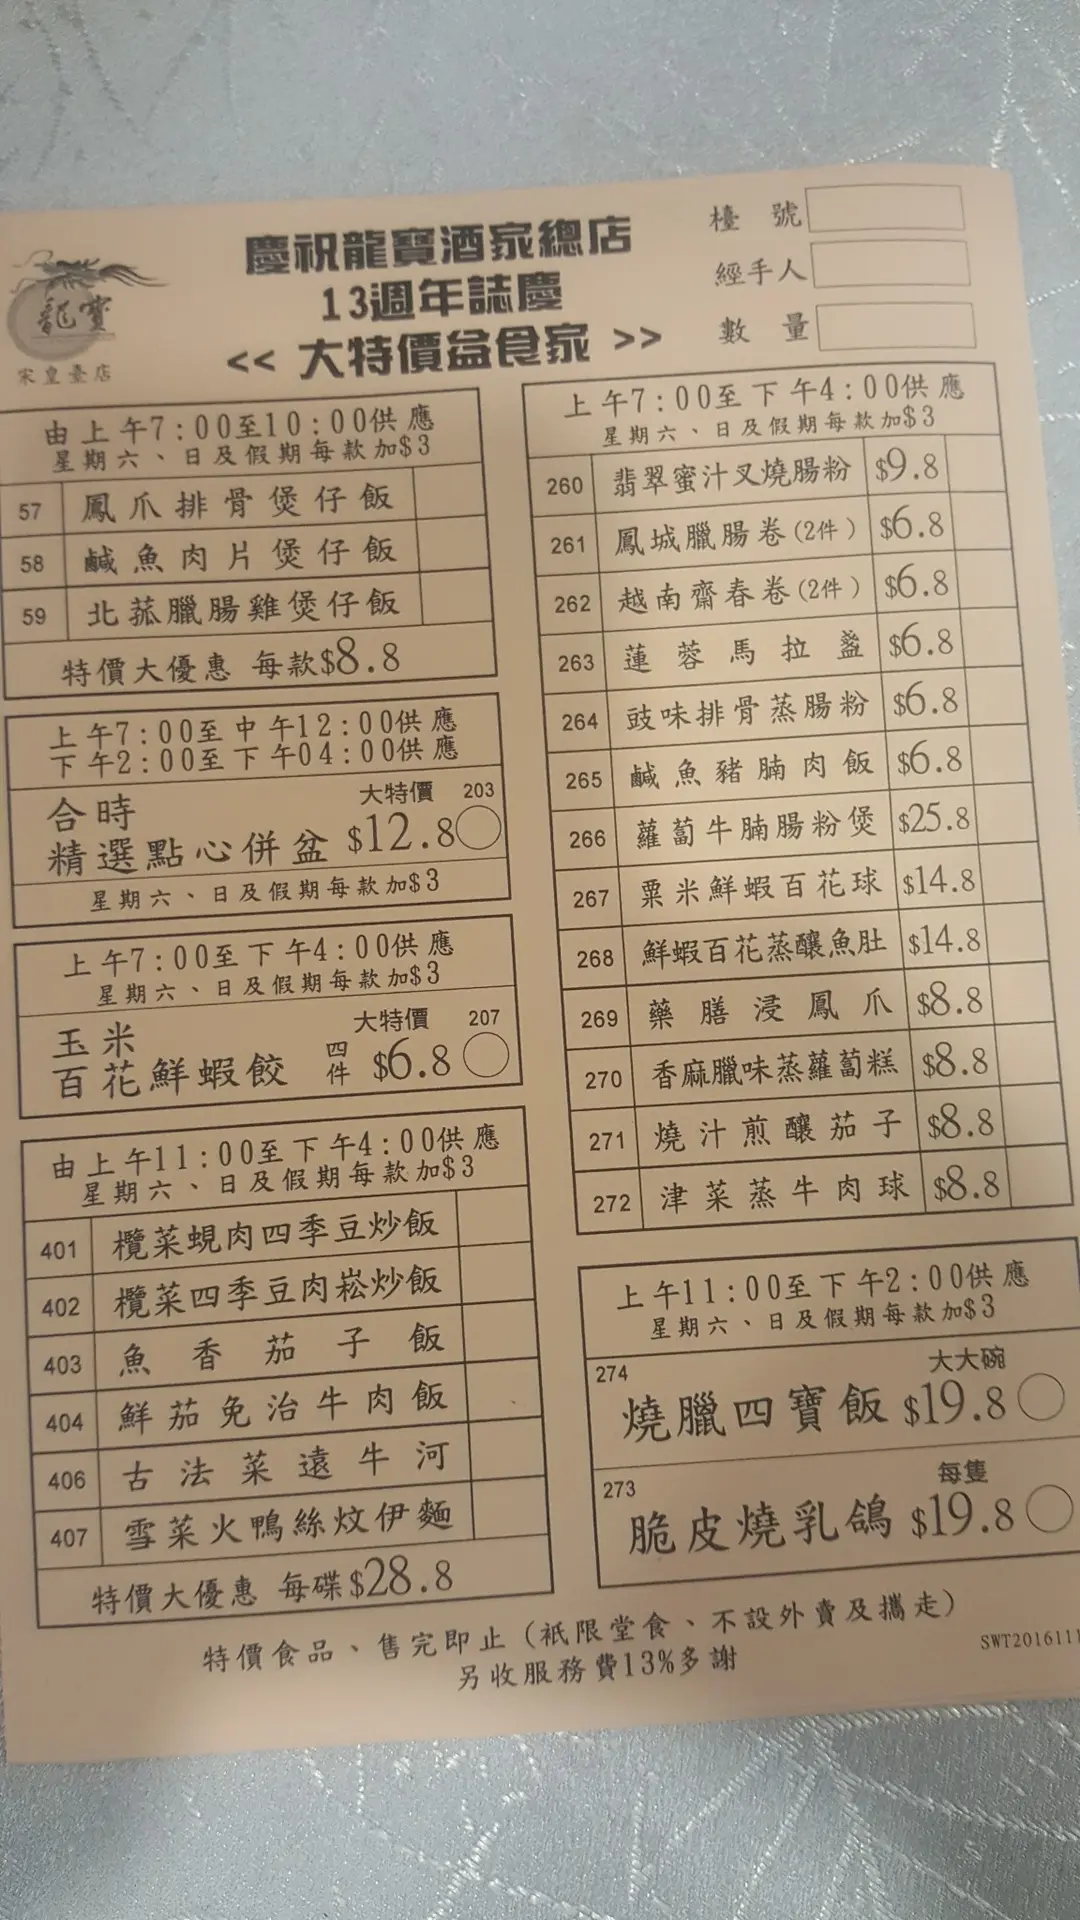 慶祝龍寶酒家總店
13週年誌慶
<< 大特價益食家 >>
龍寶
宋皇臺店
檯號
經手人
數量
由上午7:00至10:00供應
星期六、日及假期每款加$3
57 鳳爪排骨煲仔飯
58 鹹魚肉片煲仔飯
59 北菰臘腸雞煲仔飯
特價大優惠 每款$8.8
上午7:00至中午12:00供應
下午2:00至下午04:00供應
合時 大特價 203
精選點心併盆 $12.8
星期六、日及假期每款加$3
上午7:00至下午4:00供應
星期六、日及假期每款加$3
玉米 大特價 207
百花鮮蝦餃 四件 $6.8
由上午11:00至下午4:00供應
星期六、日及假期每款加$3
401 欖菜蜆肉四季豆炒飯
402 欖菜四季豆肉崧炒飯
403 魚香茄子飯
404 鮮茄免治牛肉飯
406 古法菜遠牛河
407 雪菜火鴨絲炆伊麵
特價大優惠 每碟$28.8
上午7:00至下午4:00供應
星期六、日及假期每款加$3
260 翡翠蜜汁叉燒腸粉 $9.8
261 鳳城臘腸卷(2件) $6.8
262 越南齋春卷(2件) $6.8
263 蓮蓉馬拉盞 $6.8
264 豉味排骨蒸腸粉 $6.8
265 鹹魚豬腩肉飯 $6.8
266 蘿蔔牛腩腸粉煲 $25.8
267 粟米鮮蝦百花球 $14.8
268 鮮蝦百花蒸釀魚肚 $14.8
269 藥膳浸鳳爪 $8.8
270 香麻臘味蒸蘿蔔糕 $8.8
271 燒汁煎釀茄子 $8.8
272 津菜蒸牛肉球 $8.8
上午11:00至下午2:00供應
星期六、日及假期每款加$3
274 大大碗
燒臘四寶飯 $19.8
273 每隻
脆皮燒乳鴿 $19.8
特價食品、售完即止(祗限堂食、不設外賣及攜走)
另收服務費13%多謝
SWT2016111